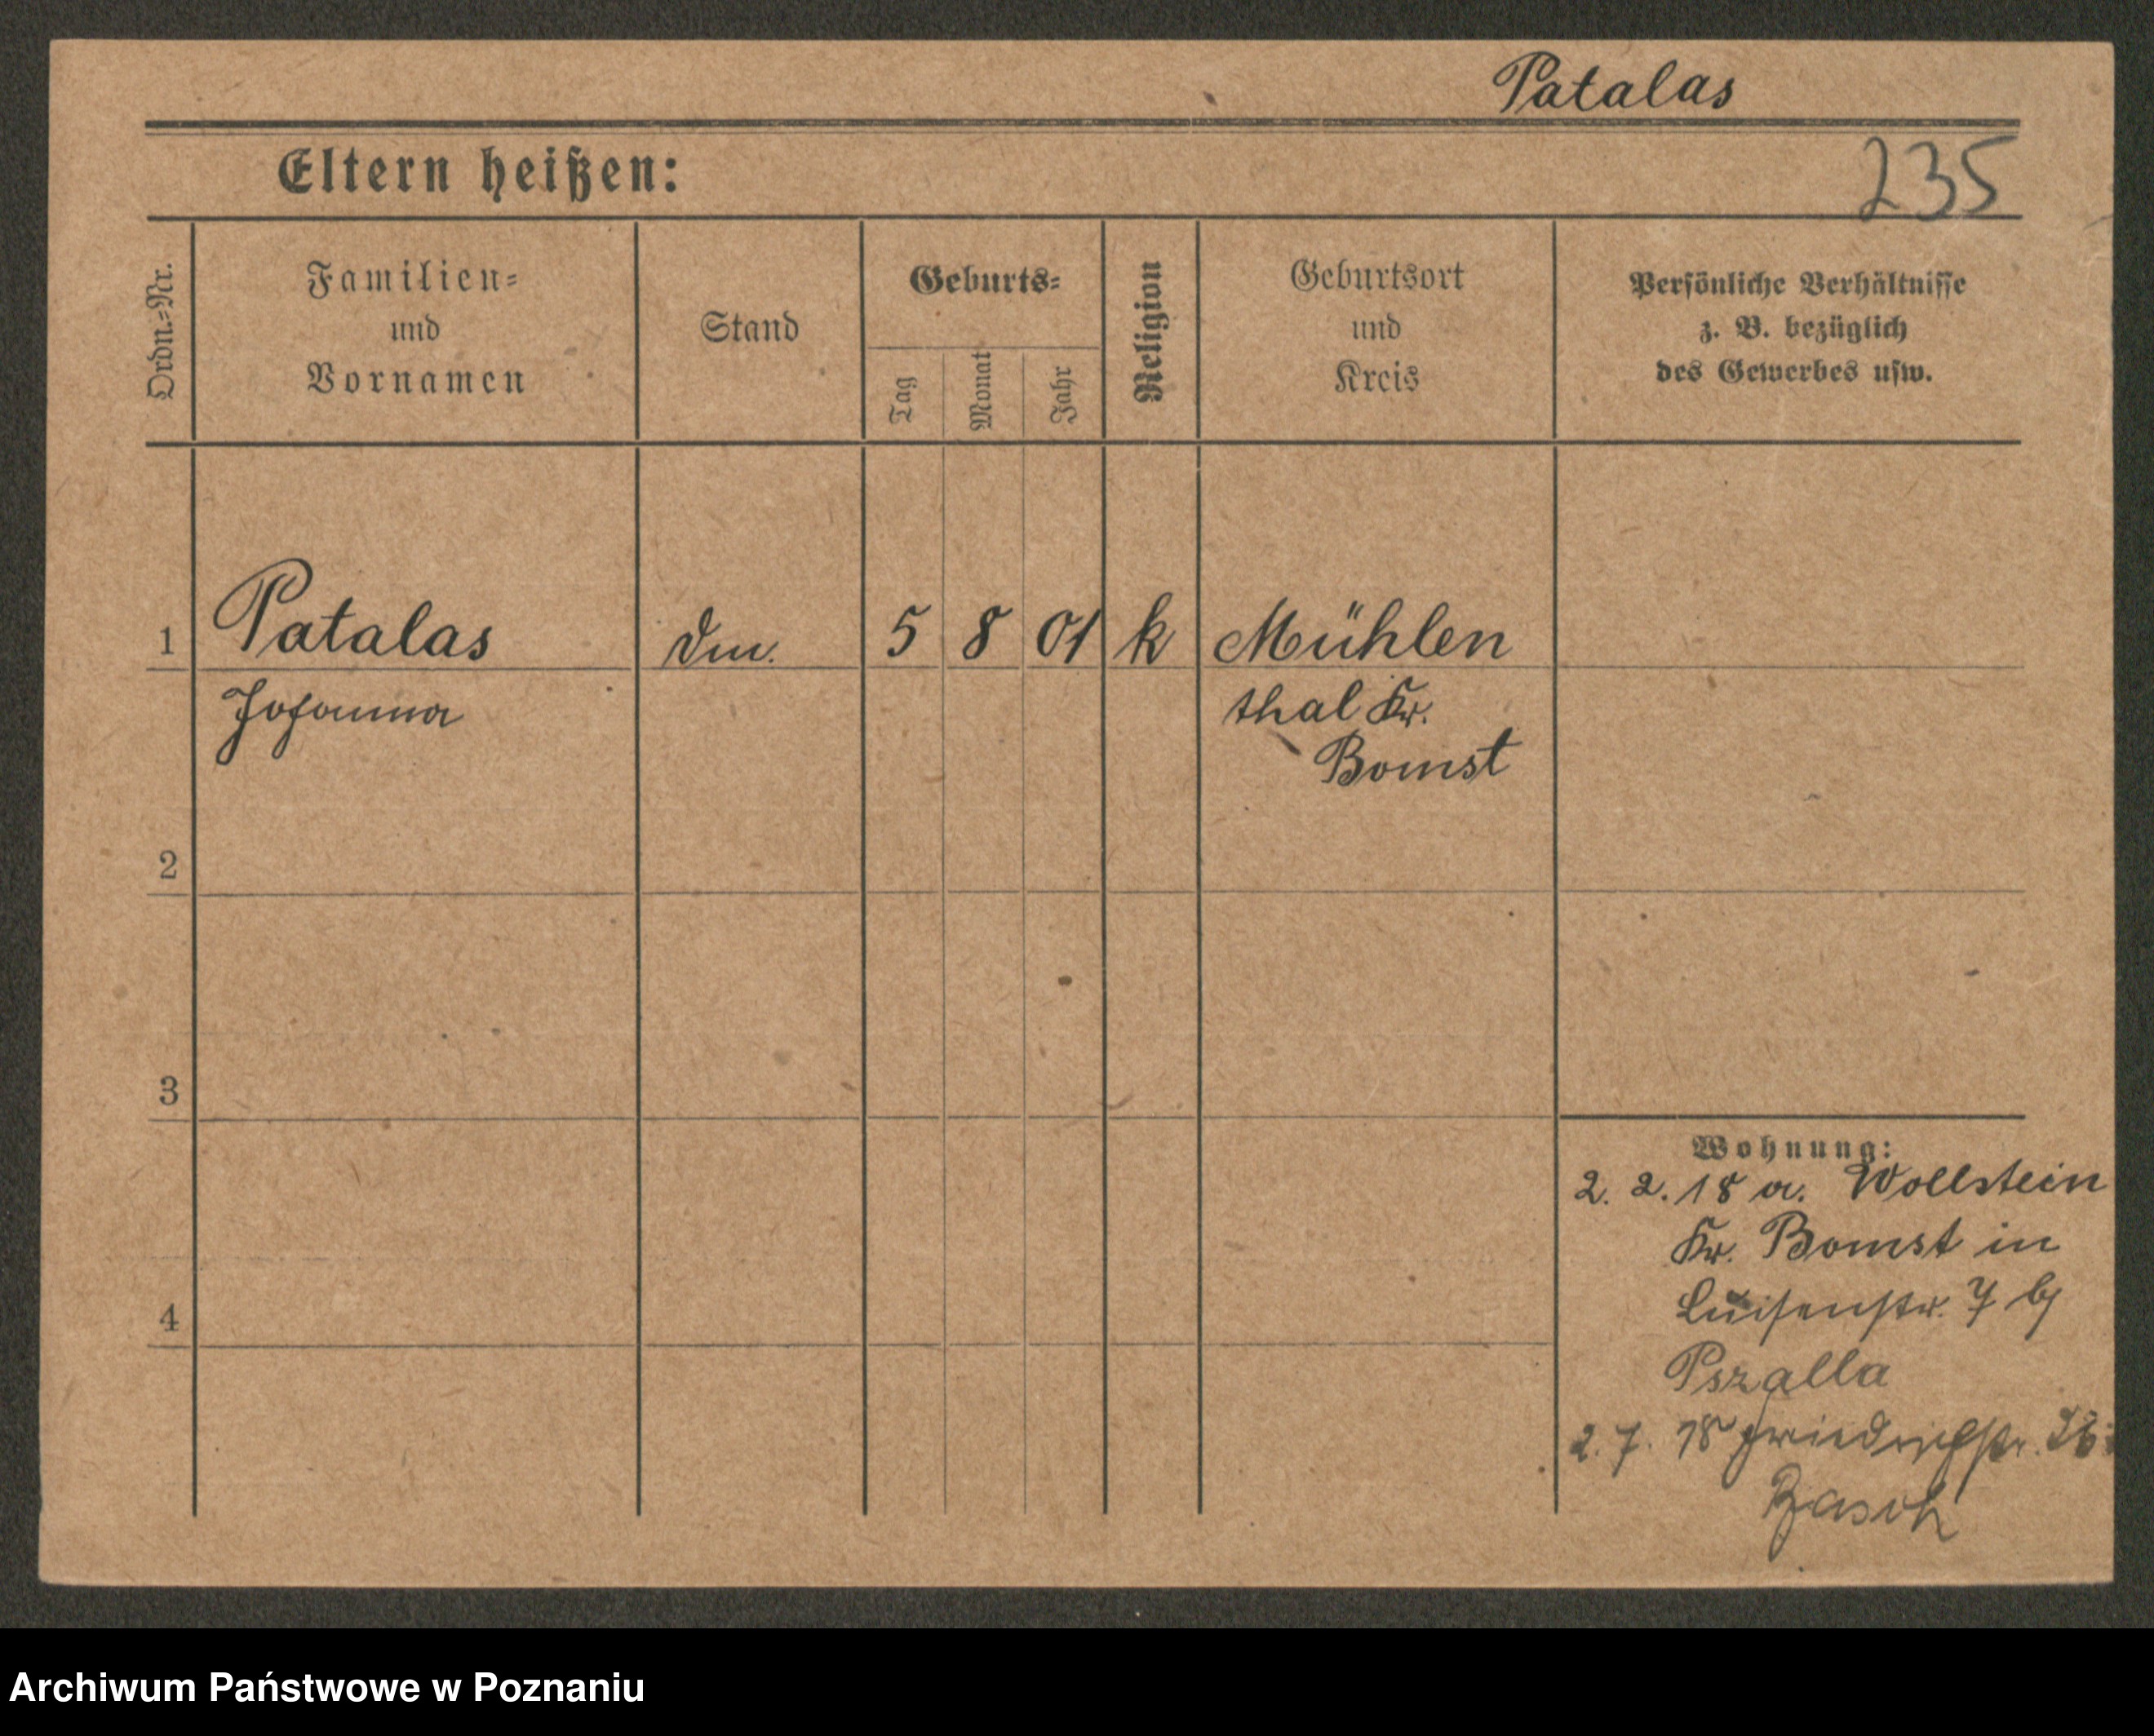 Patalas
Eltern heißen:
235
Ordn.-Nr.
Familien-
und
Vornamen
Stand
Geburts-
Tag
Monat
Jahr
Religion
Geburtsort
und
Kreis
Persönliche Verhältnisse
z. B. bezüglich
des Gewerbes usw.
1
Patalas
5
8
01
k
Mühlen
Johanna
thal Kr.
Bomst
2
3
4
Wohnung:
2. 2. 18 a. Wollstein
Kr. Bomst in
Luisenstr. 7 b/
Pszalla
2. 7. 18 Friedrichstr.
Archiwum Państwowe w Poznaniu